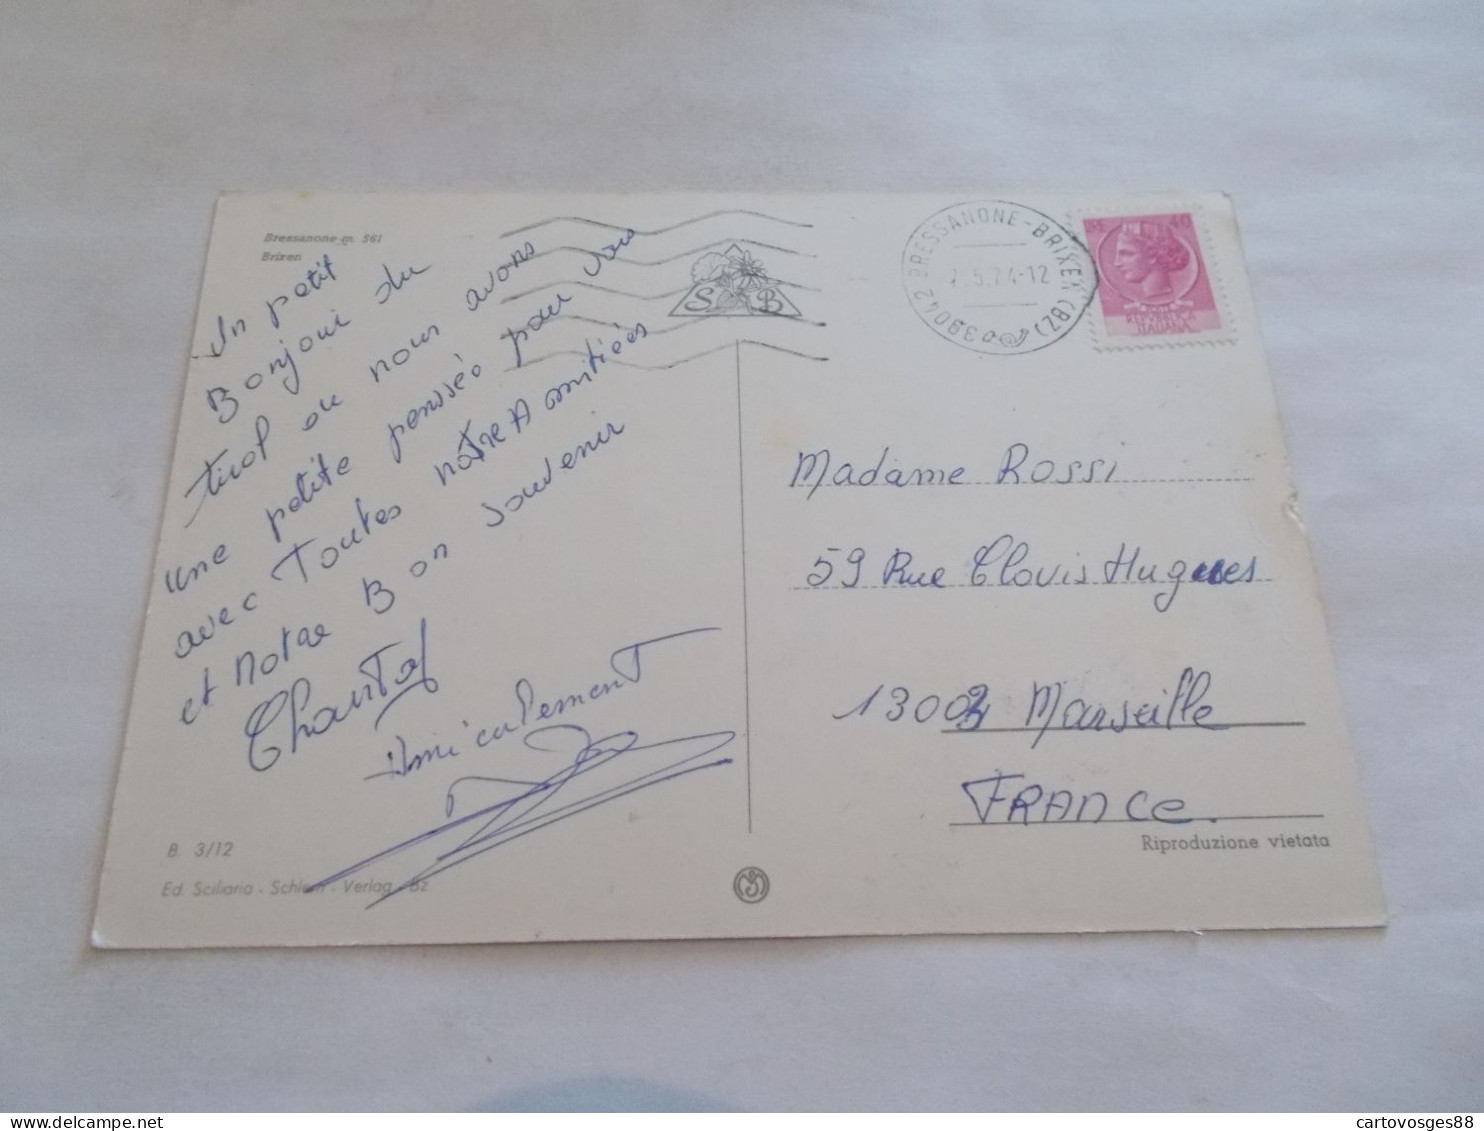 Bressanone m. 561
Brixen
Un petit
Bonjour du
tirol ou nous avons
une petite penssée pour vous
avec Toutes notre Amitiées
et Notre Bon souvenir
Chantal
Amicalement
B. 3/12
Ed. Sciliaria - Schlern - Verlag - Bz
S B
39042 BRESSANONE-BRIXEN (BZ)
.5.74-12
40
REPUBBLICA
ITALIANA
Madame Rossi
59 Rue Clovis Hugues
13003 Marseille
FRANCE.
Riproduzione vietata
cartovosges88